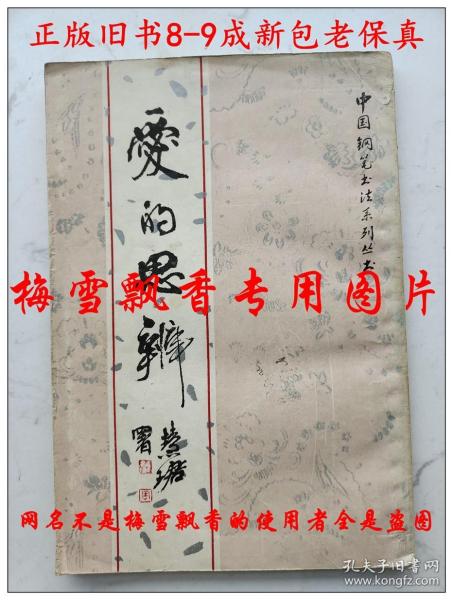 正版旧书8-9成新包老保真
中国钢笔书法系列丛书
愛的思辨
慧珺
署
梅雪飘香专用图片
网名不是梅雪飘香的使用者全是盗图
孔夫子旧书网
www.kongfz.com